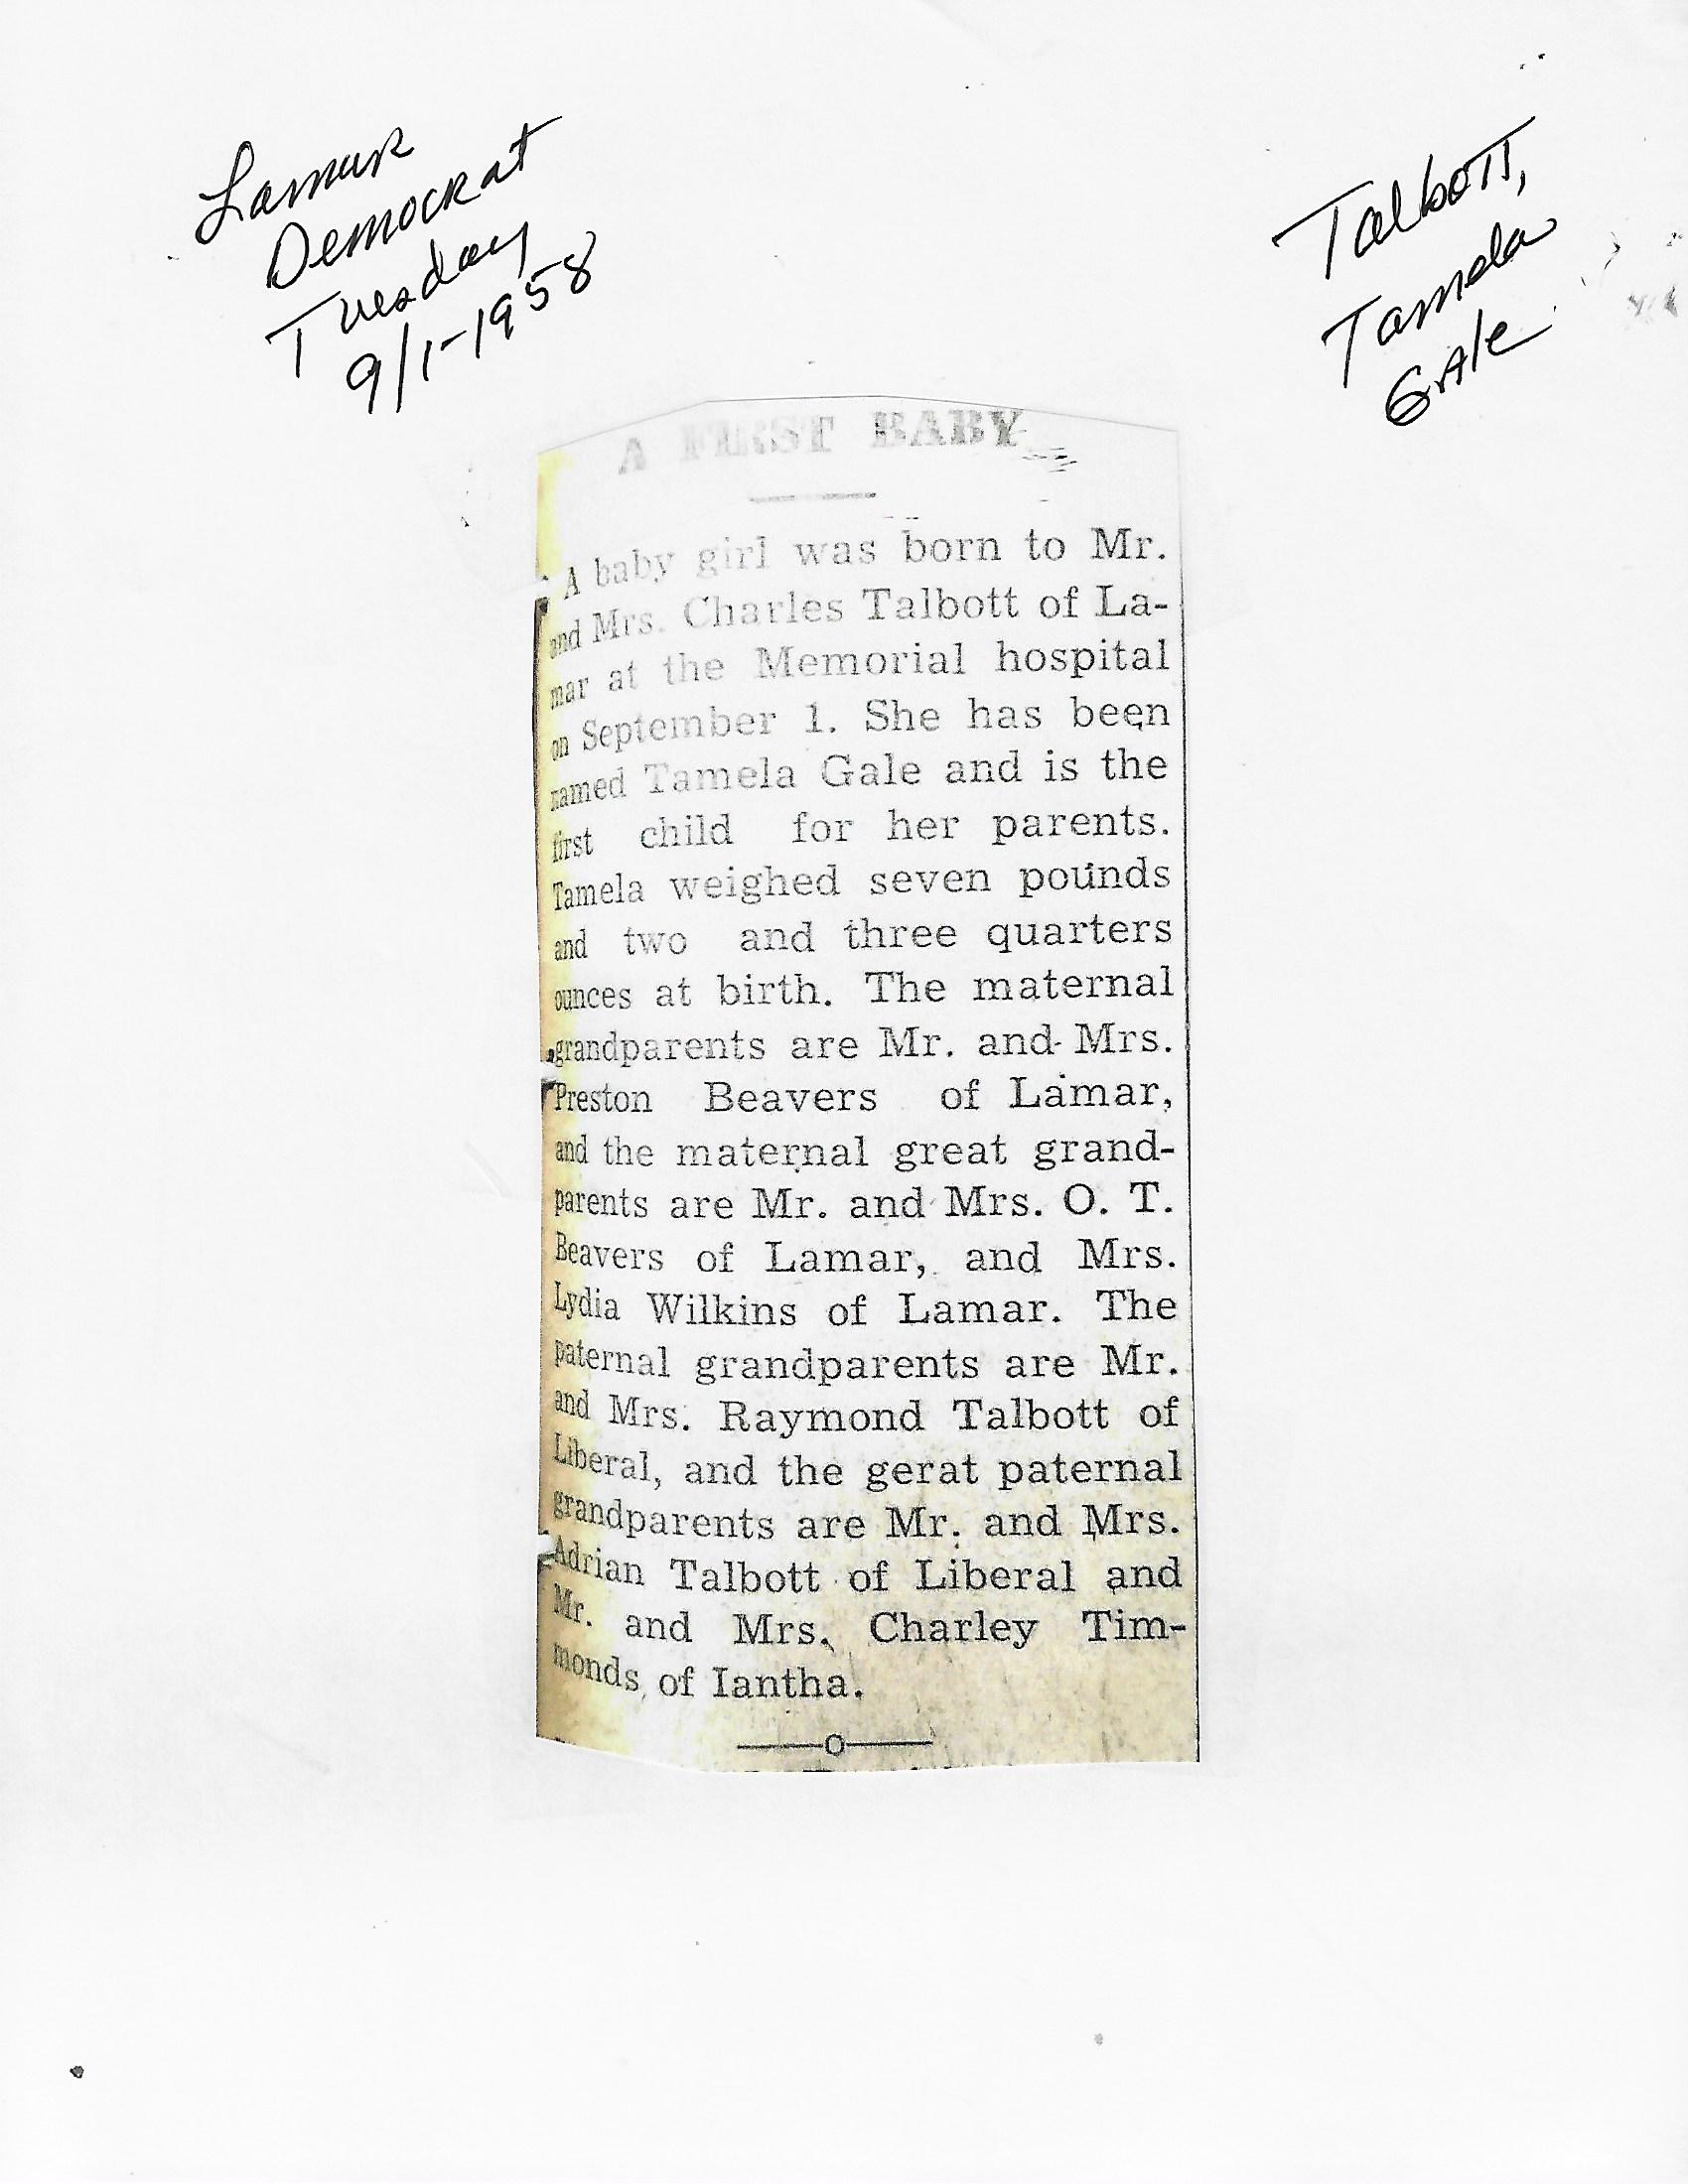 Lamar
Democrat
Tuesday
9/1-1958
Talbott,
Tamela
Gale
A FIRST BABY
A baby girl was born to Mr.
and Mrs. Charles Talbott of La-
mar at the Memorial hospital
on September 1. She has been
named Tamela Gale and is the
first child for her parents.
Tamela weighed seven pounds
and two and three quarters
ounces at birth. The maternal
grandparents are Mr. and Mrs.
Preston Beavers of Lamar,
and the maternal great grand-
parents are Mr. and Mrs. O. T.
Beavers of Lamar, and Mrs.
Lydia Wilkins of Lamar. The
paternal grandparents are Mr.
and Mrs. Raymond Talbott of
Liberal, and the gerat paternal
grandparents are Mr. and Mrs.
Adrian Talbott of Liberal and
Mr. and Mrs. Charley Tim-
monds of Iantha.